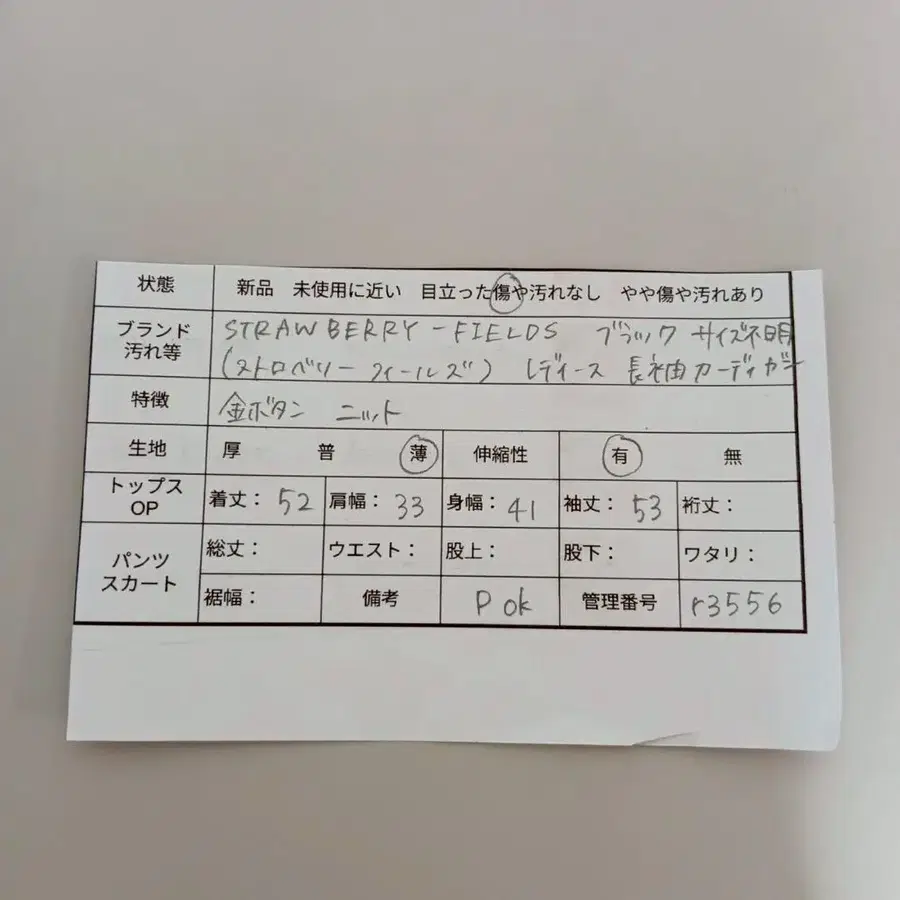 状態 新品 未使用に近い 目立った傷や汚れなし やや傷や汚れあり
ブランド 汚れ等 STRAWBERRY-FIELDS ブラック サイズ不明
(ストロベリーフィールズ) レディース 長袖カーディガン
特徴 金ボタン ニット
生地 厚 普 薄 伸縮性 有 無
トップス OP 着丈：52 肩幅：33 身幅：41 袖丈：53 裄丈：
パンツ スカート 総丈： ウエスト： 股上： 股下： ワタリ：
裾幅： 備考 P ok 管理番号 r3556